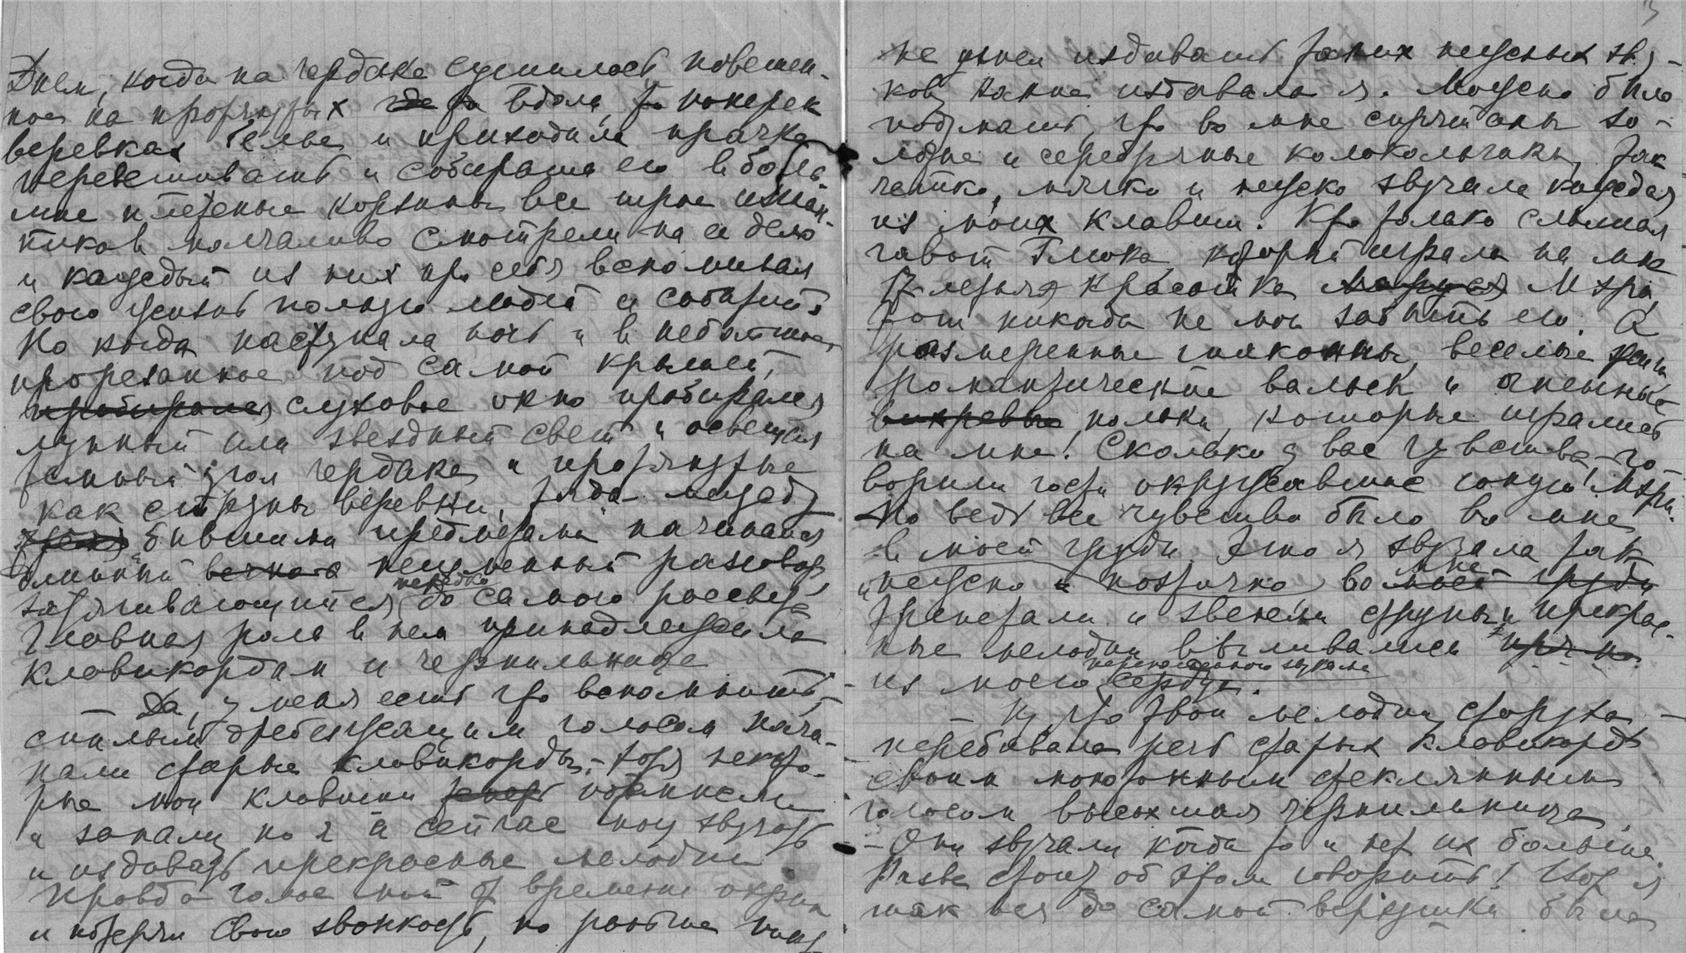 Днем, когда на чердаке сушилось повешен-
ное на протянутых вдоль, то поперек
веревках белье и приходила прачка
перевешивать и собирать его в боль-
шие плетеные корзины все трое
молчаливо смотрели на ее дело
и каждый из них про себя вспоминал
свою жизнь пользу людей и событий.
Но когда наступала ночь и в небольшое
прорезанное под самой крышей,
пробирался слуховое окно пробирался
лунный или звездный свет и освещал
темный угол чердака и протянутые
как струны веревки, тогда между
бывшими предметами начинался
длинный неспешный разговор,
затягивающийся нередко до самого рассвета
Главная роль в нем принадлежала
клавикордам и чернильнице
Да, у меня есть что вспомнить,-
сиплым дребезжащим голосом начи-
нали старые клавикорды,- хотя некото-
рые мои клавиши
и запали, но я и сейчас могу звучать
и издавать прекрасные мелодии
Правда голос мой от времени охрип
и потерял свою звонкость, но раньше никто
не умел издавать таких нежных зву-
ков, какие издавала я. Можно было
подумать, что во мне спрятаны зо-
лотые и серебряные колокольчики, так
четко, мягко и нежно звучала каждая
из моих клавиш. Кто только слышал
гавот Глюка, который играла на мне
17-летняя красотка Маруся Мэри,
тот никогда не мог забыть его. А
размеренные веселые
романтические вальсы и огненные
вихревые польки, которые игрались
на мне! Сколько у вас чувства, го-
ворили гости окружавшие юную Мэри.
Но ведь все чувство было во мне
в моей груди Это я звучала так
нежно и поэтично, во мне моей груди
трепетали и звенели струны и прекрас-
ные мелодии выливались прямо
из моего переполненного звуками сердца.
- Ну что твои мелодии, старуха -
перебивала речь старых клавикорд
своим монотонным стеклянным
голосом высохшая чернильница,
- Они звучали когда то и нет их больше.
Разве стоит об этом говорить! Вот я
так вся до самой верхушки была